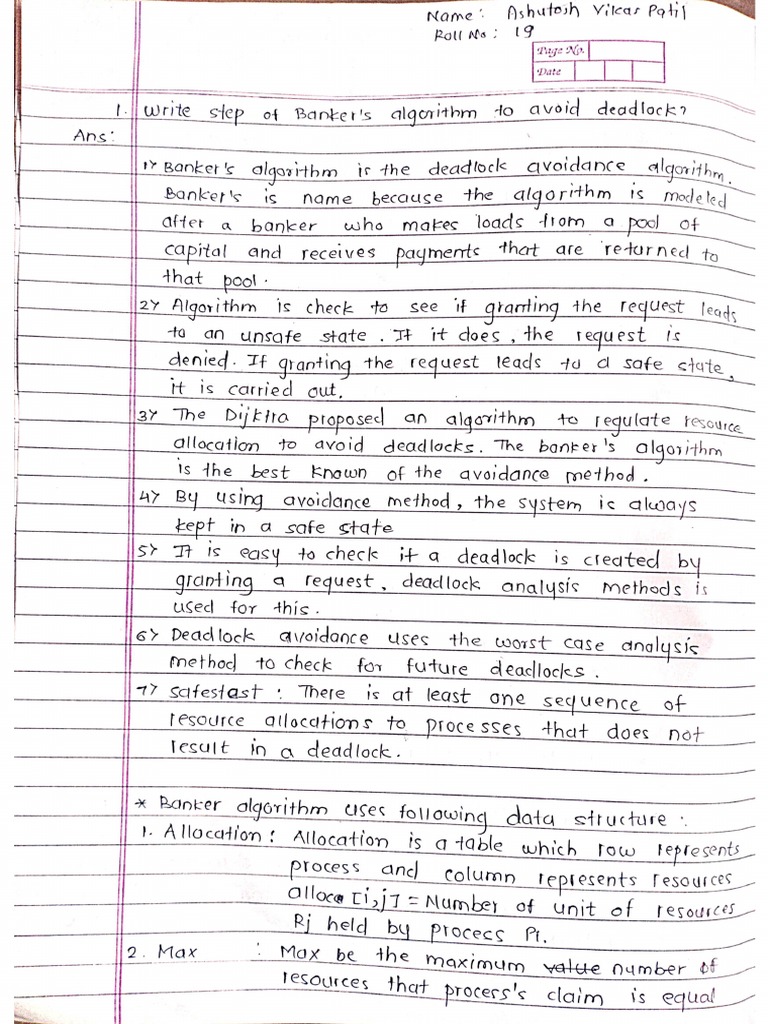 Name: Ashutosh Vikas Patil
Roll No: 19
Page No.
Date
1. Write step of Banker's algorithm to avoid deadlock?
Ans:
1> Banker's algorithm is the deadlock avoidance algorithm.
Banker's is name because the algorithm is modeled
after a banker who makes loads from a pool of
capital and receives payments that are returned to
that pool.
2> Algorithm is check to see if granting the request leads
to an unsafe state. If it does, the request is
denied. If granting the request leads to a safe state,
it is carried out.
3> The Dijktra proposed an algorithm to regulate resource
allocation to avoid deadlocks. The banker's algorithm
is the best known of the avoidance method.
4> By using avoidance method, the system is always
kept in a safe state
5> It is easy to check if a deadlock is created by
granting a request, deadlock analysis methods is
used for this.
6> Deadlock avoidance uses the worst case analysis
method to check for future deadlocks.
7> Safestast: There is at least one sequence of
resource allocations to processes that does not
result in a deadlock.
* Banker algorithm uses following data structure:
1. Allocation: Allocation is a table which row represents
process and column represents resources
alloca [i,j] = Number of unit of resources
Rj held by process Pi.
2. Max : Max be the maximum value number of
resources that process's claim is equal